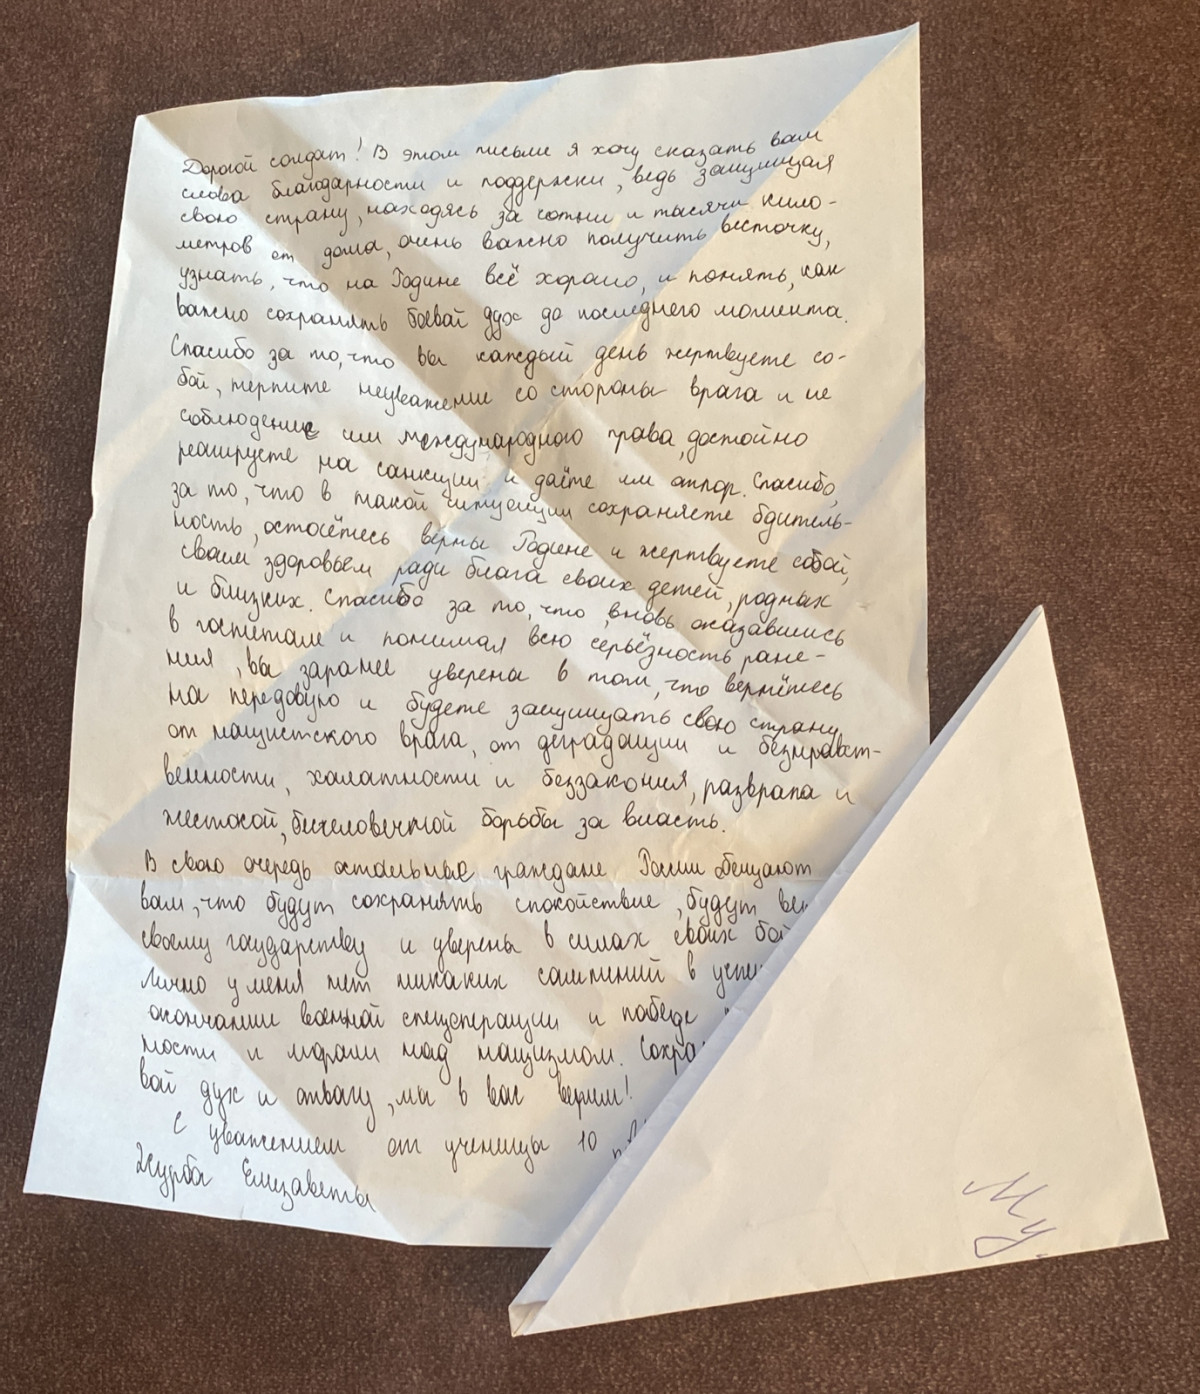 Дорогой солдат! В этом письме я хочу сказать вам
слова благодарности и поддержки, ведь защищая
свою страну, находясь за сотни и тысячи кило-
метров от дома, очень важно получить весточку,
узнать, что на Родине всё хорошо, и понять, как
важно сохранять боевой дух до последнего момента.
Спасибо за то, что вы каждый день жертвуете со-
бой, терпите неуважение со стороны врага и не
соблюдение им международного права, достойно
реагируете на санкции и даёте им отпор. Спасибо,
за то, что в такой ситуации сохраняете бдитель-
ность, остаётесь верны Родине и жертвуете собой,
своим здоровьем ради блага своих детей, родных
и близких. Спасибо за то, что, вновь оказавшись
в госпитале и понимая всю серьёзность ране-
ния, вы заранее уверены в том, что вернётесь
на передовую и будете защищать свою страну
от нацистского врага, от деградации и безнравст-
венности, халатности и беззакония, разврата и
жестокой, бесчеловечной борьбы за власть.
В свою очередь остальные граждане России обещают
вам, что будут сохранять спокойствие, будут
своему государству и уверены в силах своих
Лично у меня нет никаких сомнений в
окончании военной спецоперации и победе
ности и морали над нацизмом.
вой дух и отвагу, мы в вас верим!
С уважением от ученицы 10
Журба Елизаветы
Му.